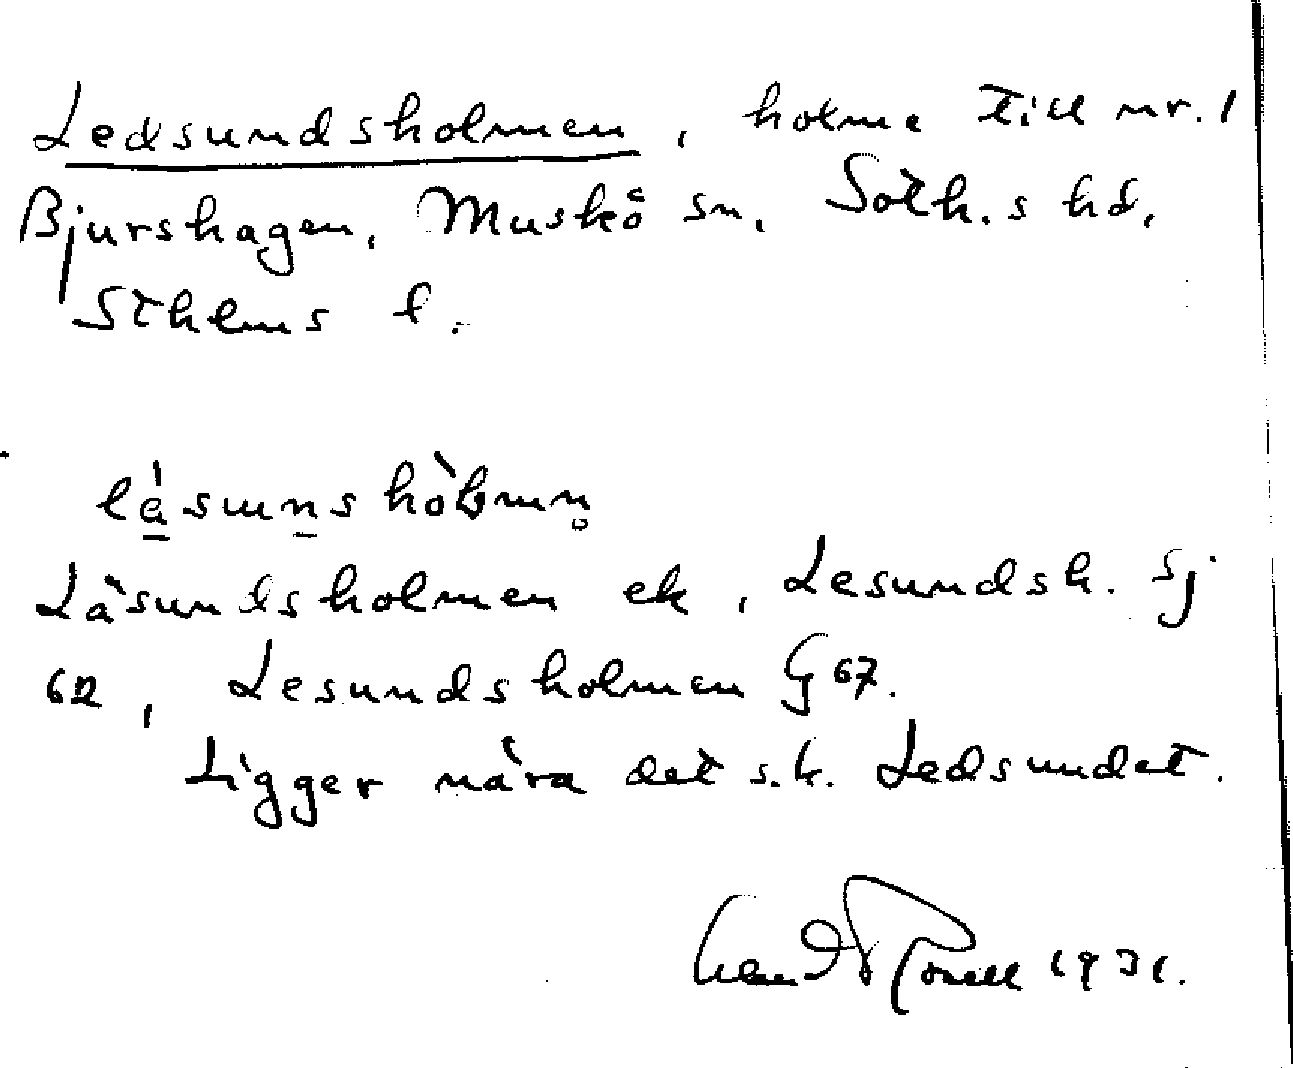 Ledsundsholmen, holme till nr. 1
Bjurshagen, Muskö sn, Soth.s hd,
Sthlms l.
Läsundsholmen ek, Lesundsh. sj
62, Lesundsholmen G 67.
Ligger nära det s.k. Ledsundet.
1931.